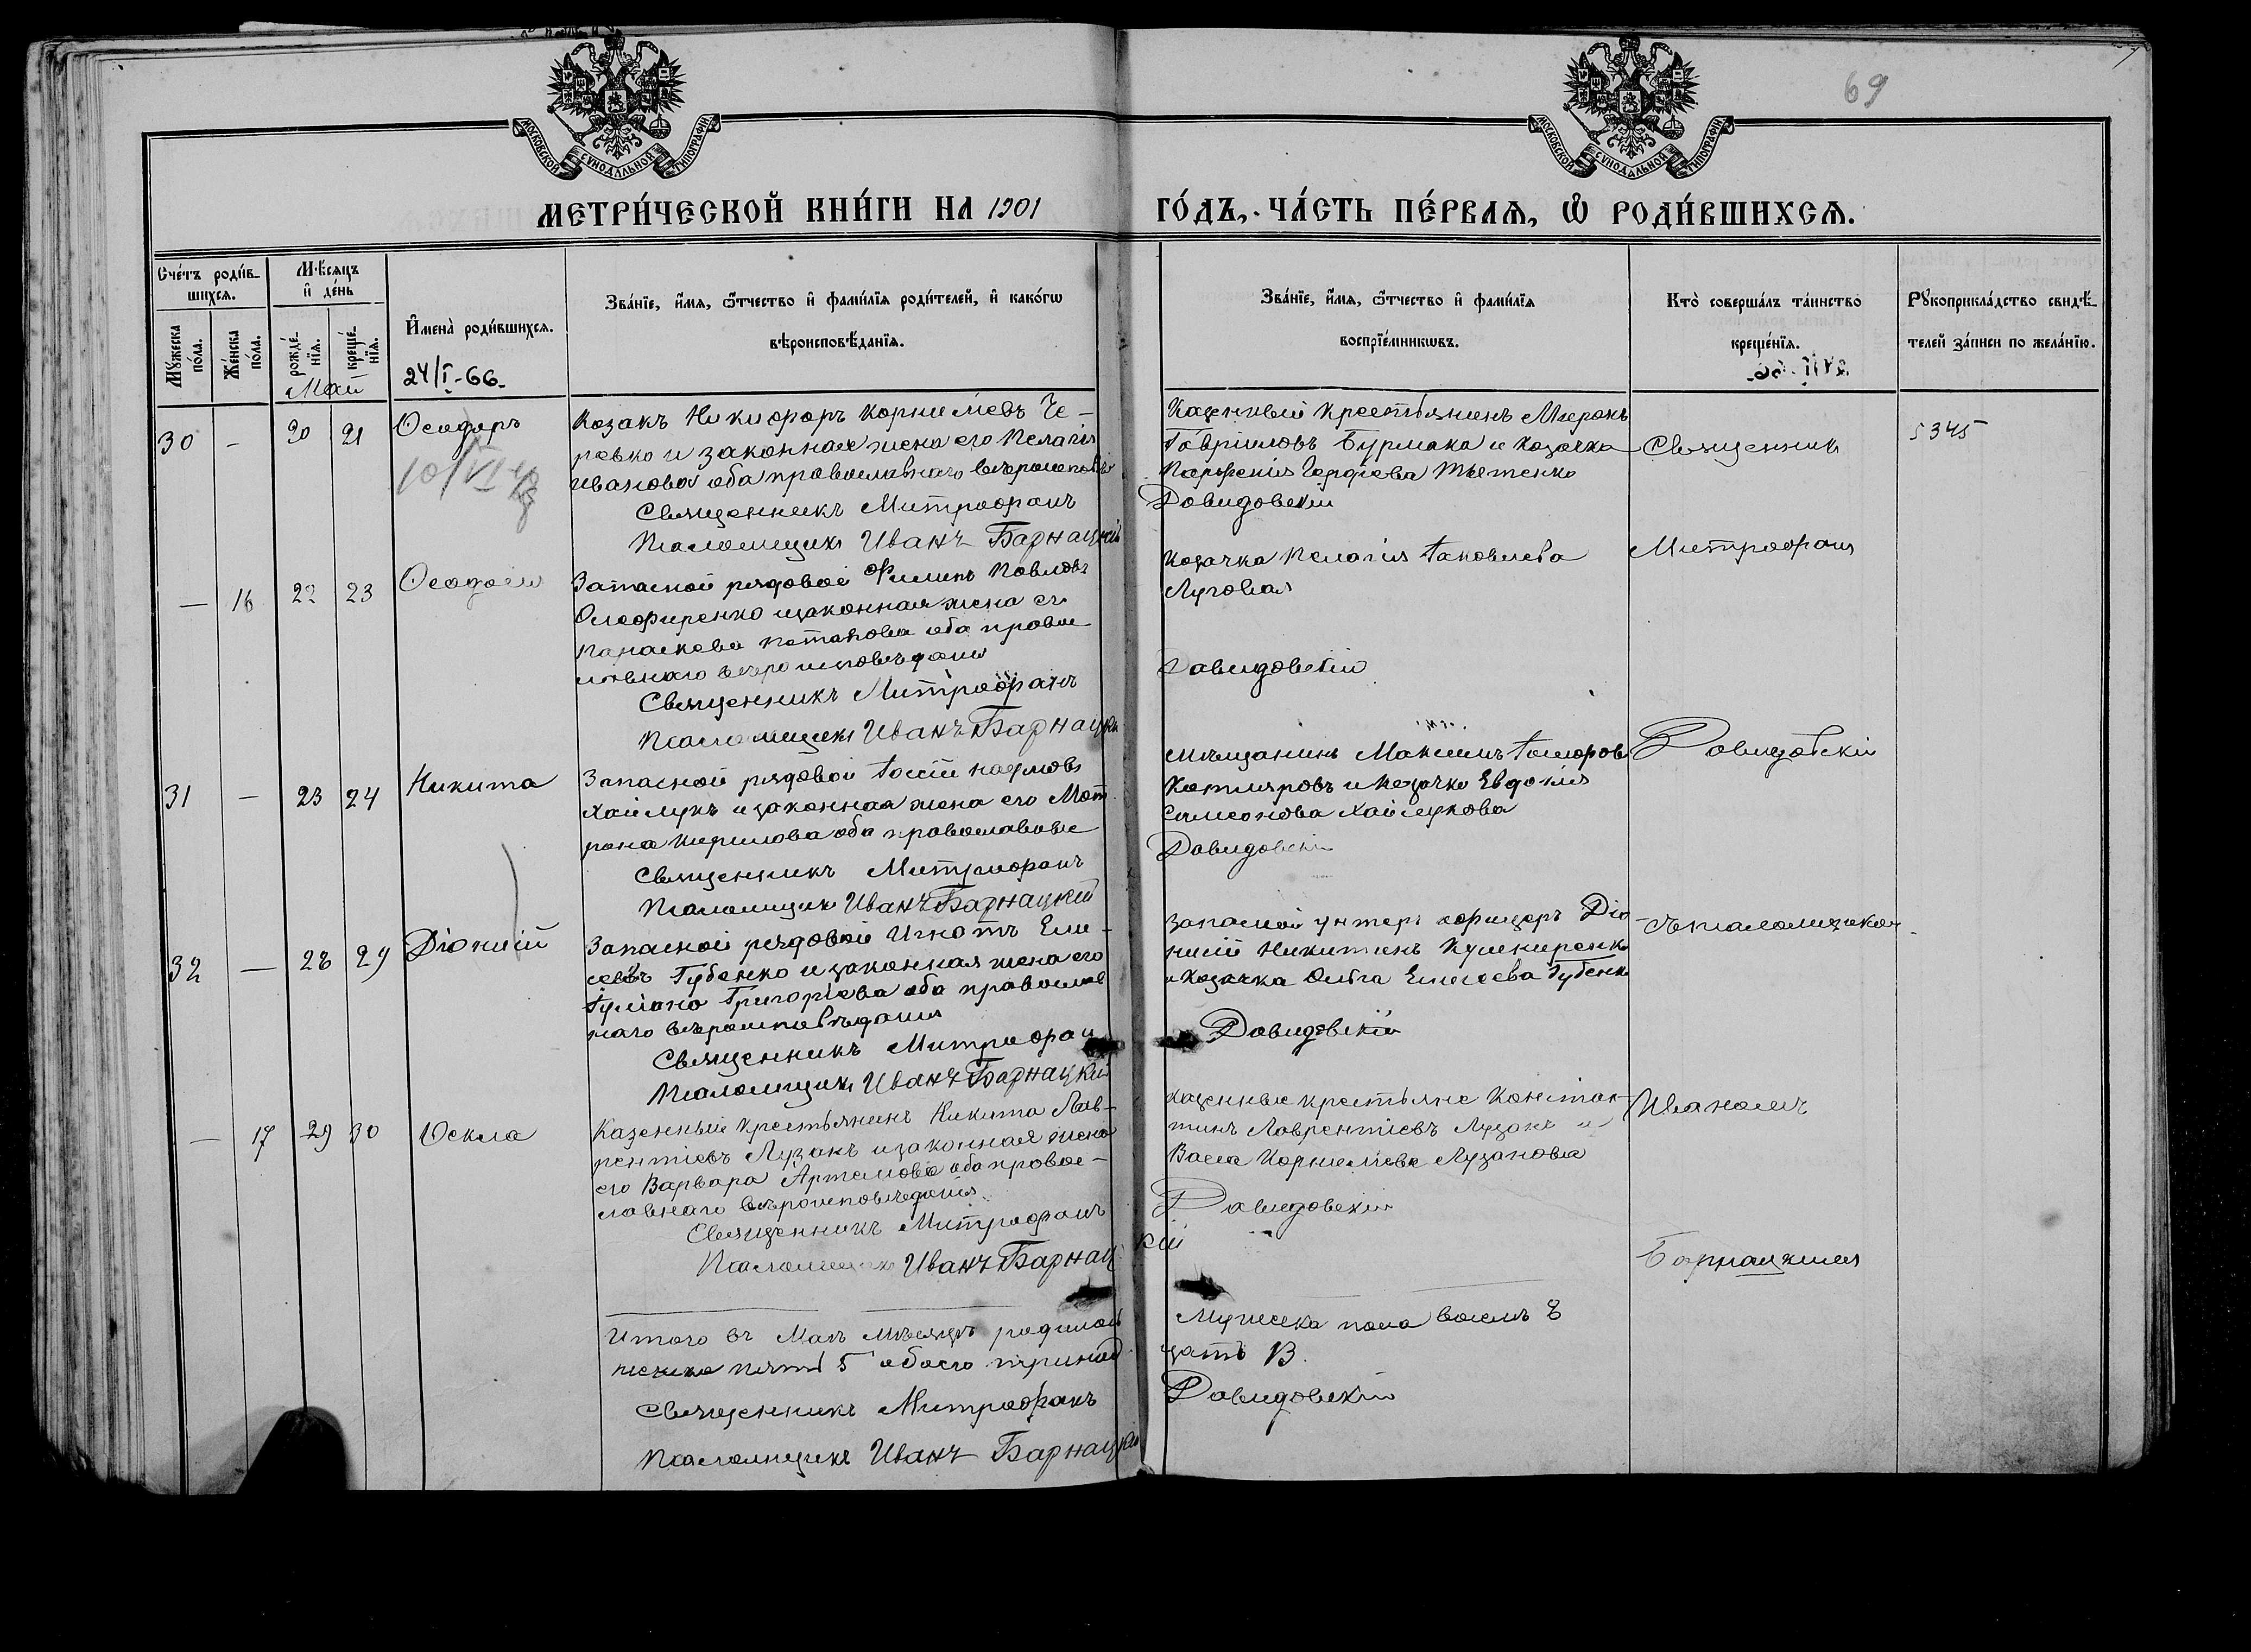 69
МОСКОВСКОЙ СѴНОДАЛЬНОЙ ТИПОГРАФІИ
МОСКОВСКОЙ СѴНОДАЛЬНОЙ ТИПОГРАФІИ
МЕТРИ́ЧЕСКОЙ КНИ́ГИ НА 1901 ГО́ДЪ, ЧА́СТЬ ПЕ́РВАЯ, Ѡ РОДИ́ВШИХСЯ.
Сче́тъ роди́в-
шихся.
Мꙋ́жеска по́ла.
Же́нска по́ла.
М҄ѣсяцъ
и де́нь
рожде́-
нїя.
креще́-
нїя.
Май
Имена̀ роди́вшихся.
24/I-66.
Зва́нїе, и́мя, ѻ҆́тчество и фами́лїя роди́телей, и како́гѡ
вѣроисповѣ́данїя.
Зва́нїе, и́мя, ѻ҆́тчество и фами́лїя
воспрїе́мникѡвъ.
Кто̀ соверша́лъ та́инство
креще́нїя.
Рꙋкоприкла́дство свидѣ́-
телей за́писи по жела́нїю.
30 - 20 21 Ѳеодоръ
Козакъ Никифоръ Корнилієвъ Че-
ревко и законная жена его Пелагія
Иванова оба православнаго
Священникъ Митрофанъ
Псаломщикъ Иванъ Барнацкій
Казенный крестьянинъ Миронъ
Гавріиловъ Бурмака и козачка
Гордіева
Давидовскій
Священникъ
5345
— 16 22 23
Запасной рядовой Филипъ Павловъ
Олефиренко и законная жена его
Параскева Потапова оба правос
лавнаго вѣроисповѣданія
Священникъ Митрофанъ
Псаломщикъ Иванъ Барнацкій
Козачка Пелагія Іаковлева
Луговая
Давидовскій
Митрофанъ
31 — 23 24 Никита
Запасной рядовой Наумовъ
Хайлукъ и законная жена его Мат
рона Кирилова оба православные
Священникъ Митрофанъ
Псаломщикъ Иванъ Барнацкій
Мѣщанинъ Максимъ
Котляровъ и козачка Евдокія
Симеонова Хайлукова
Давидовскій
Давидовскій
32 — 28 29 Діонисій
Запасной рядовой Игнатъ Ели-
сеевъ Губенко и законная жена его
Іуліана Григоріева оба православ
наго вѣроисповѣданія
Священникъ Митрофан
Псаломщикъ Иванъ Барнацкій
Запасной унтеръ офицеръ Діо
нисій Никитинъ Кушниренко
и козачка Ольга Елисеева Губенко
Давидовскій
съ псаломщикомъ
— 17 29 30 Ѳекла
Казенный крестьянинъ Никита Лав-
рентіевъ Лузанъ и законная жена
его Варвара Артемова оба правос-
лавнаго вѣроисповѣданія
Священникъ Митрофанъ
Псаломщикъ Иванъ Барнацкій
Казенные крестьяне Констан-
тинъ Лаврентіевъ Лузанъ и
Васса Корниліева Лузанова
Давидовскій
Иваномъ
Барнацкимъ
Итого въ Маѣ мѣсяцѣ родилось Мужеска пола восемь 8
женска пять 5 обоего тринадцать 13.
Священникъ Митрофанъ Давидовскій
Псаломщикъ Иванъ Барнацкій